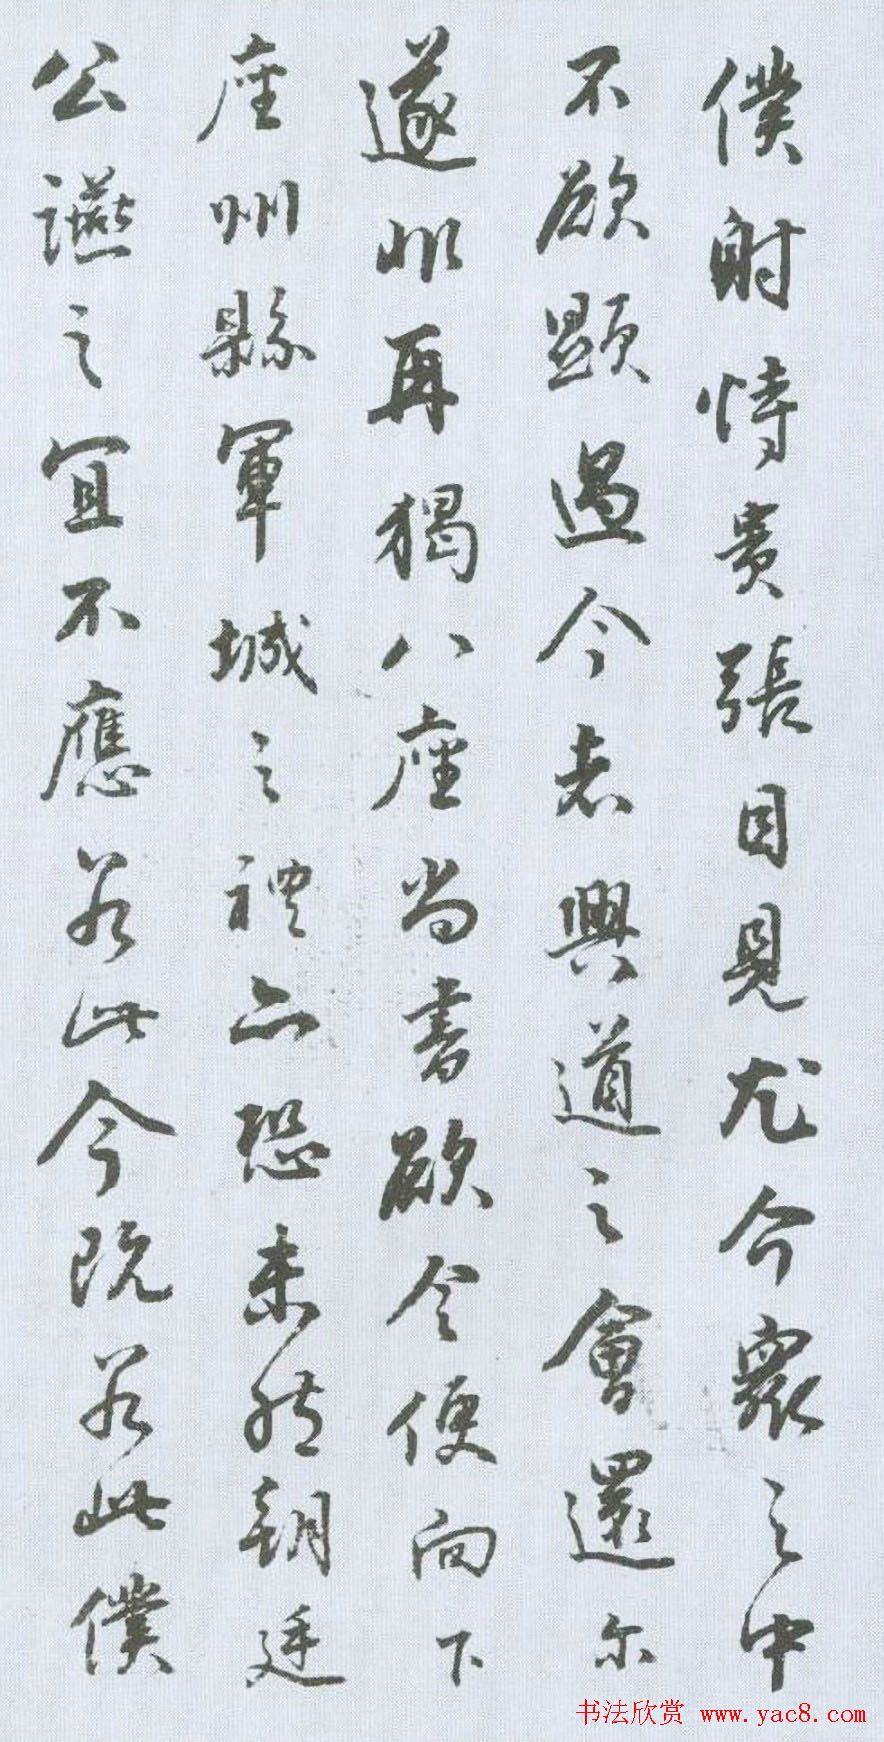 僕射恃貴張目見尤介衆之中
不欲顯過今者興道之會還尔
遂非再猲八座尚書欲令便向下
座州縣軍城之禮亦恐未然朝廷
公讌之宜不應若此今既若此僕
书法欣赏 www.yac8.com